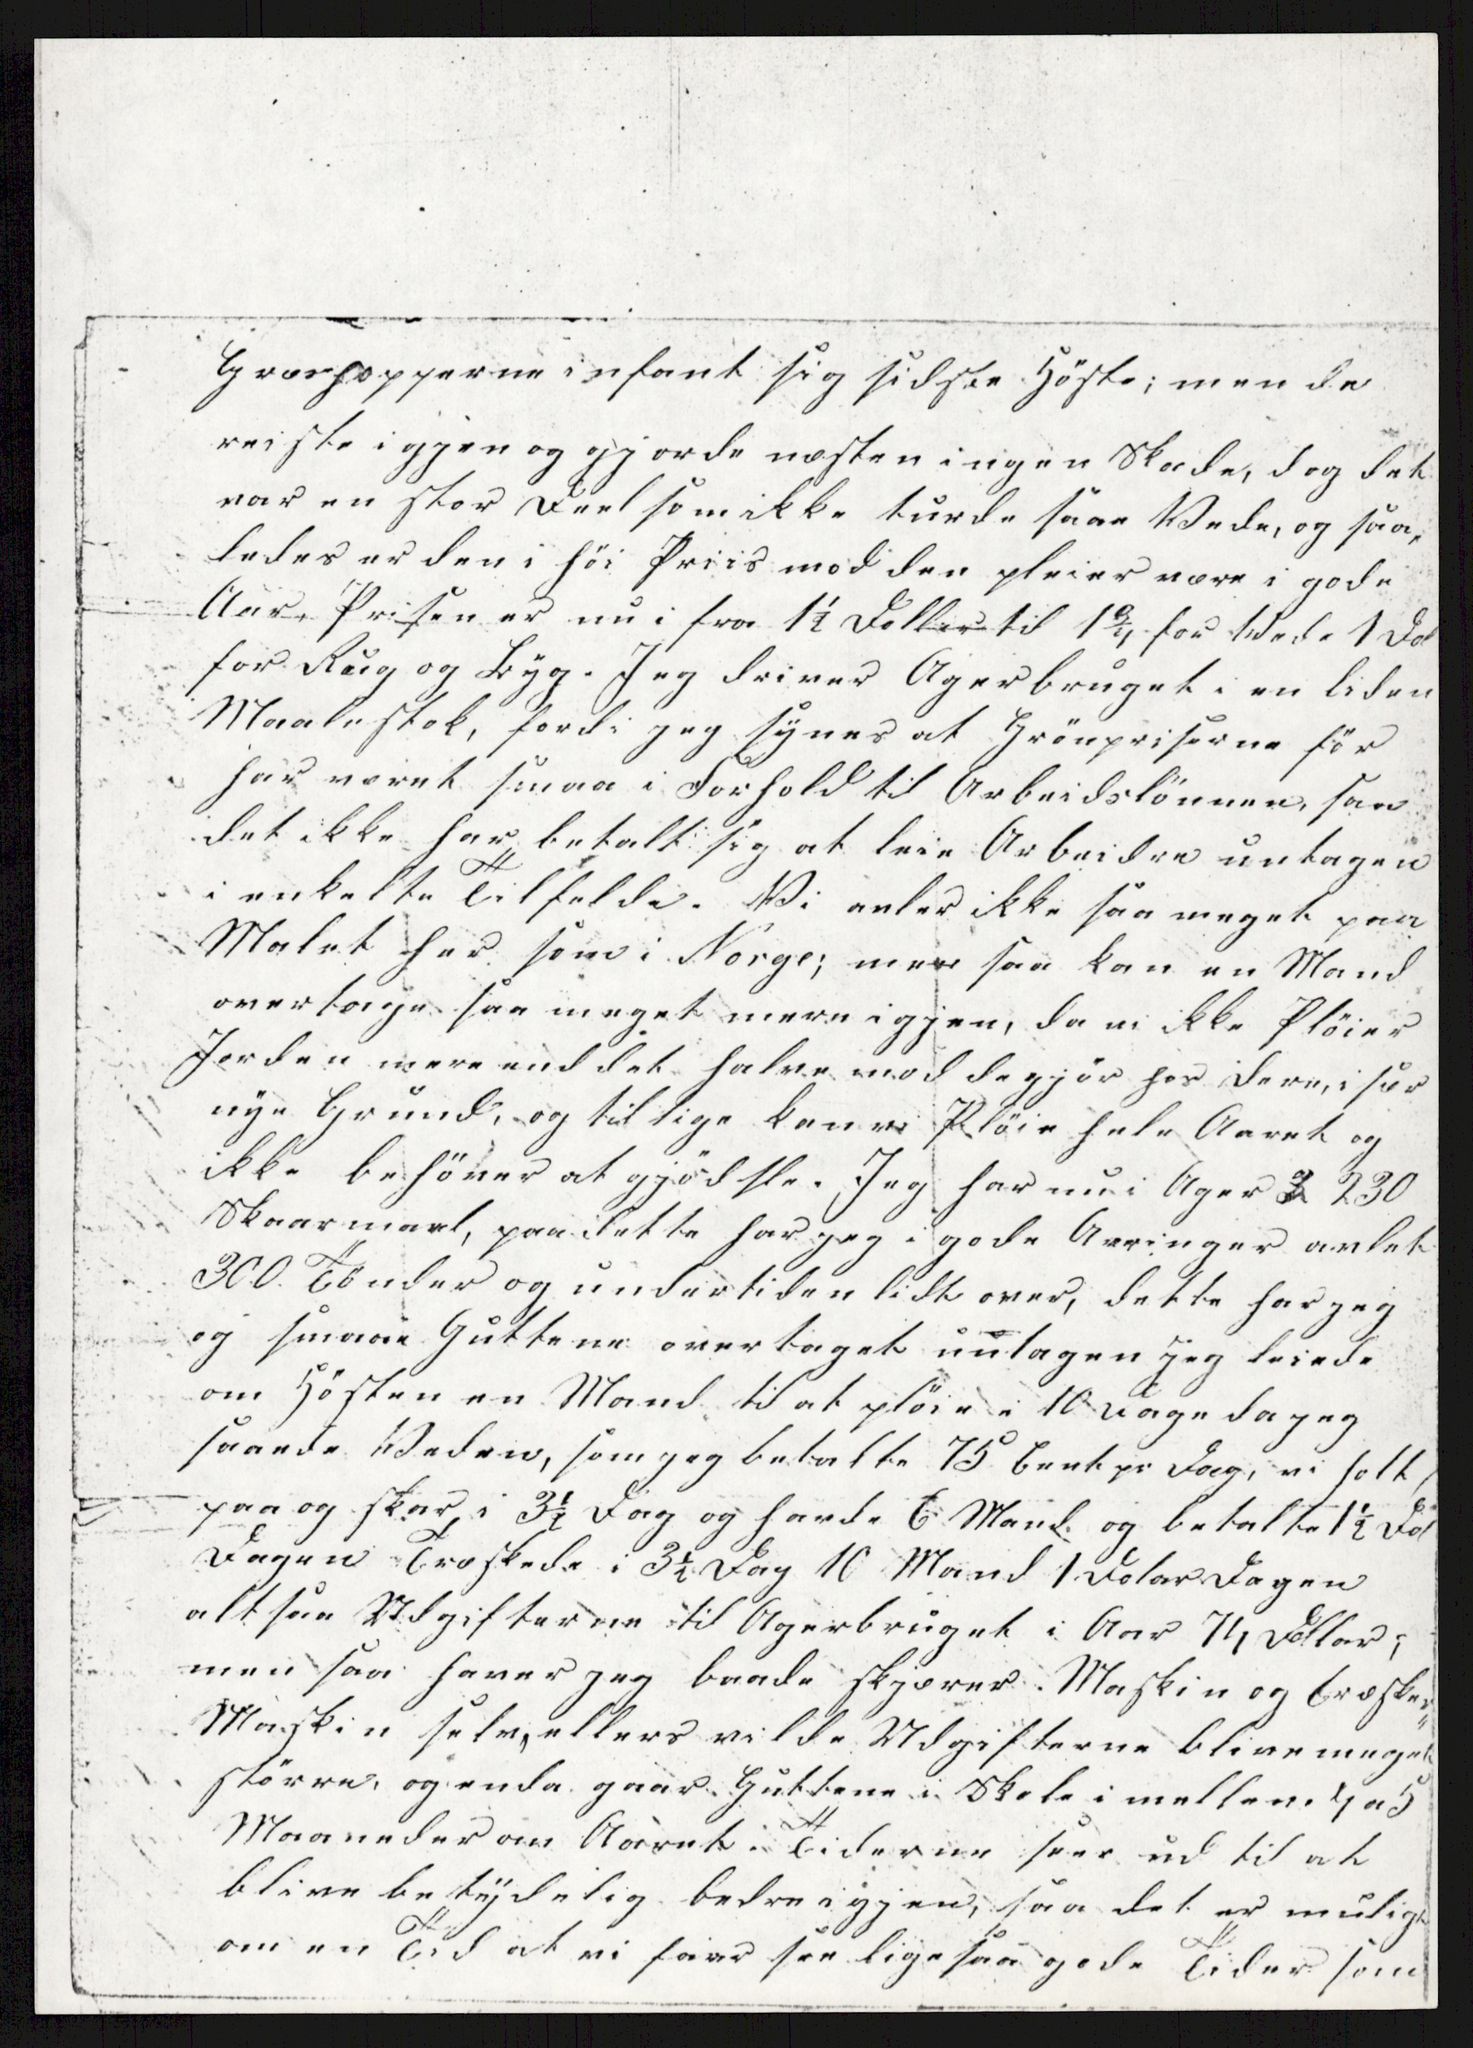 Græshopperne infant sig sidste Höste; men de
reiste igjen og gjorde næsten ingen Skade, dog det
var en stor Deel som ikke turde saae Vede, og saa„
ledes er den i höi Priis mod den pleier være i gode
Aar. Prisen er nu i fra 1½ Doller til 1¾ for Vede 1 Dol
for Rug og Byg. Jeg driver Agerbruget i en liden
Maalestok, fordi jeg synes at Grönpriserne för
har været smaa i Forhold til Arbeidslönnen, saa
det ikke har betalt sig at leie Arbeidre untagen
i enkelte Tilfelde. Vi avler ikke saa meget paa
Malet her som i Norge; men saa kan en Mand
overtage saa meget mere igjen, da vi ikke Plöier
Jorden mere end det halve mod de gjör hos dere, i sær
nye Grund, og tillige kan vi Plöie hele Aaret og
ikke behöver at gjödsle. Jeg har nu i Ager 230
Skaarmaal, paa dette har jeg i gode Aaringer avlet
300 Tönder og undertiden lidt over, dette har jeg
og smaae Guttene overtaget untagen jeg leiede
om Hösten en Mand til at plöie i 10 Dage da jeg
saaede Veden, som jeg betalte 75 Cent pr Dag, vi holt
paa og skar i 3½ Dag og havde 6 Mand og betalte 1½ Dol
Dagen Træskede i 3½ Dag 10 Mand 1 Dolar Dagen
altsaa Udgifterne til Agerbruget i Aar 74 Dollar;
men saa haver jeg baade skjærer Maskin og træske„
Maskin selv, ellers vilde Udgifterne blive meget
större, og enda gaar Guttene i Skole i mellem 4 a 5
Maaneder om Aaret. Tiderne seer ud til at
blive betydelig bedre igjen, saa det er muligt
om en Tid at vi faar see ligesaa gode Tider som